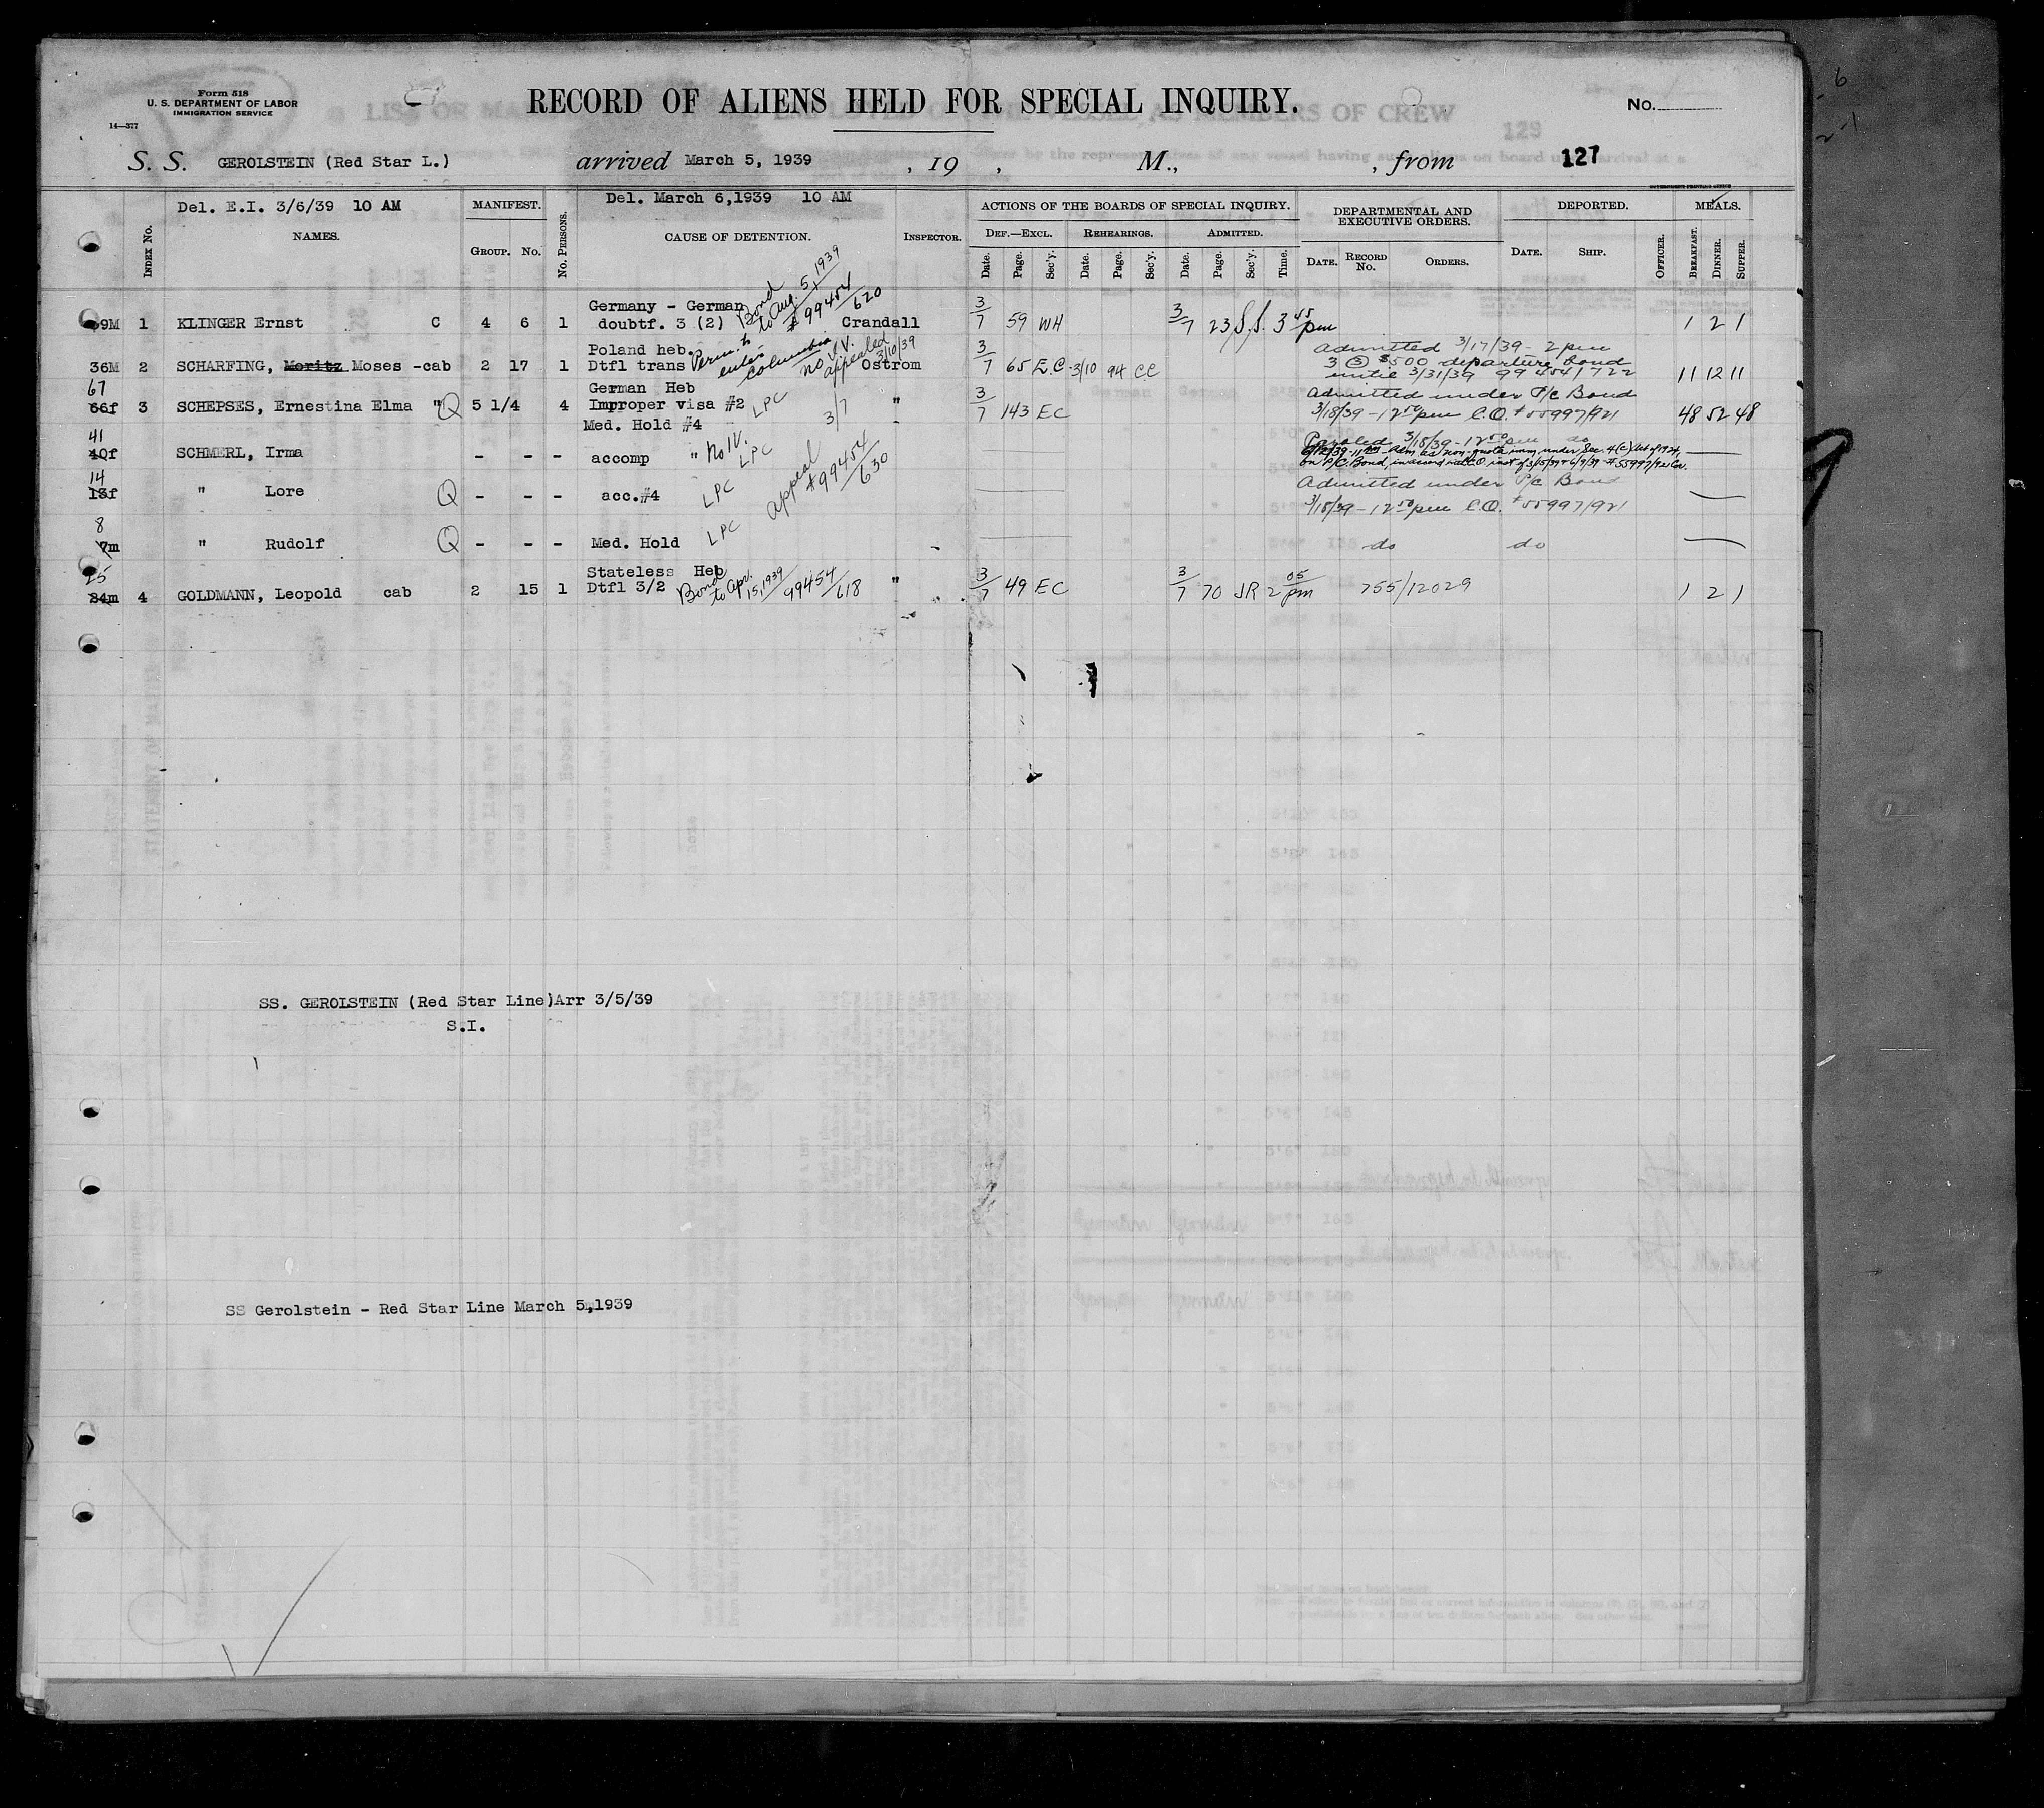 Form 518
U. S. DEPARTMENT OF LABOR
IMMIGRATION SERVICE
14—377
RECORD OF ALIENS HELD FOR SPECIAL INQUIRY.
No.
S. S. GEROLSTEIN (Red Star L.) arrived March 5, 1939 , 19 , M., , from 127
GOVERNMENT PRINTING OFFICE
Del. E.I. 3/6/39 10 AM MANIFEST. Del. March 6,1939 10 AM ACTIONS OF THE BOARDS OF SPECIAL INQUIRY. DEPARTMENTAL AND EXECUTIVE ORDERS. DEPORTED. MEALS.
INDEX No. NAMES. GROUP. No. No. PERSONS. CAUSE OF DETENTION. INSPECTOR. DEF.—EXCL. REHEARINGS. ADMITTED.
Date. Page. Sec'y. Date. Page. Sec'y. Date. Page. Sec'y. Time. DATE. RECORD No. ORDERS. DATE. SHIP. OFFICER. BREAKFAST. DINNER. SUPPER.
Germany - German Bond to Aug. 5, 1939 # 99454/620
9M 1 KLINGER Ernst C 4 6 1 doubtf. 3 (2) Crandall 3/7 59 WH 3/7 23 S.S. 3 45 pm 1 2 1
Poland heb. Perm. to enter Columbia no I.V. appealed 3/10/39 Admitted 3/17/39 - 2 pm
36M 2 SCHARFING, Moritz Moses -cab 2 17 1 Dtfl trans Ostrom 3/7 65 E.C. 3/10 94 CC 3 (3) $500 departure bond 11 12 11
until 3/31/39 99454/722
67 German Heb Admitted under P/c Bond
66f 3 SCHEPSES, Ernestina Elma " Q 5 1/4 4 Improper visa #2 LPC 3/7 " 3/7 143 EC 3/18/39 - 12 50 pm C.O. # 55997/921 48 52 48
Med. Hold #4
41 Paroled 3/18/39 - 12 50 pm do
40f SCHMERL, Irma - - - accomp " No IV. LPC Adm. as non-quota imm. under Sec. 4(c) Act of 1924,
on P/C. Bond,
14 Admitted under P/c Bond
13f " Lore Q - - - acc.#4 LPC Appeal #99454/630 3/18/39 - 12 50 pm C.O. # 55997/921
8
7m " Rudolf Q - - - Med. Hold LPC do do
25 Stateless Heb
24m 4 GOLDMANN, Leopold cab 2 15 1 Dtfl 3/2 Bond to Apr. 15, 1939 99454/618 " 3/7 49 EC 3/7 70 JR 2 05 pm 755/12029 1 2 1
SS. GEROLSTEIN (Red Star Line)Arr 3/5/39
S.I.
SS Gerolstein - Red Star Line March 5,1939